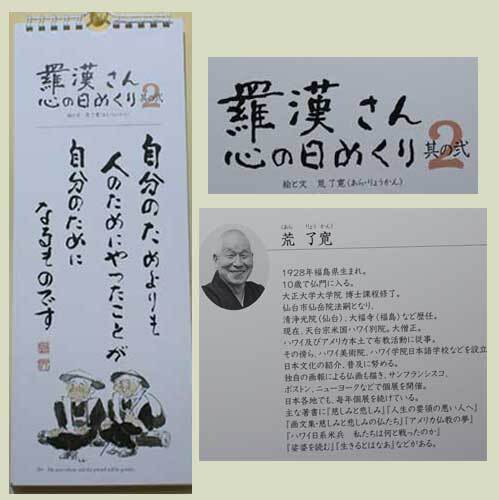 羅漢さん
心の日めくり 其の弐
2
絵と文 荒了寛(あらりょうかん)
自分のためよりも
人のためにやったことが
自分のために
なるものです
羅漢さん
心の日めくり 其の弐
2
絵と文 荒 了寛(あら・りょうかん)
(あら りょうかん)
荒 了寛
1928年福島県生まれ。
10歳で仏門に入る。
大正大学大学院 博士課程修了。
仙台市仙岳院法嗣となり、
清浄光院(仙台)、大福寺(福島)など歴任。
現在、天台宗米国ハワイ別院。大僧正。
ハワイ及びアメリカ本土で布教活動に従事。
その傍ら、ハワイ美術院、ハワイ学院日本語学校などを設立
日本文化の紹介、普及に努める。
独自の画報による仏画も描き、サンフランシスコ、
ボストン、ニューヨークなどで個展を開催。
日本各地でも、毎年個展を続けている。
主な著書に『慈しみと悲しみ』『人生の要領の悪い人へ』
『画文集・慈しみと悲しみの仏たち』『アメリカ仏教の夢』
『ハワイ日系米兵 私たちは何と戦ったのか』
『娑婆を読む』『生きるとはなお』などがある。